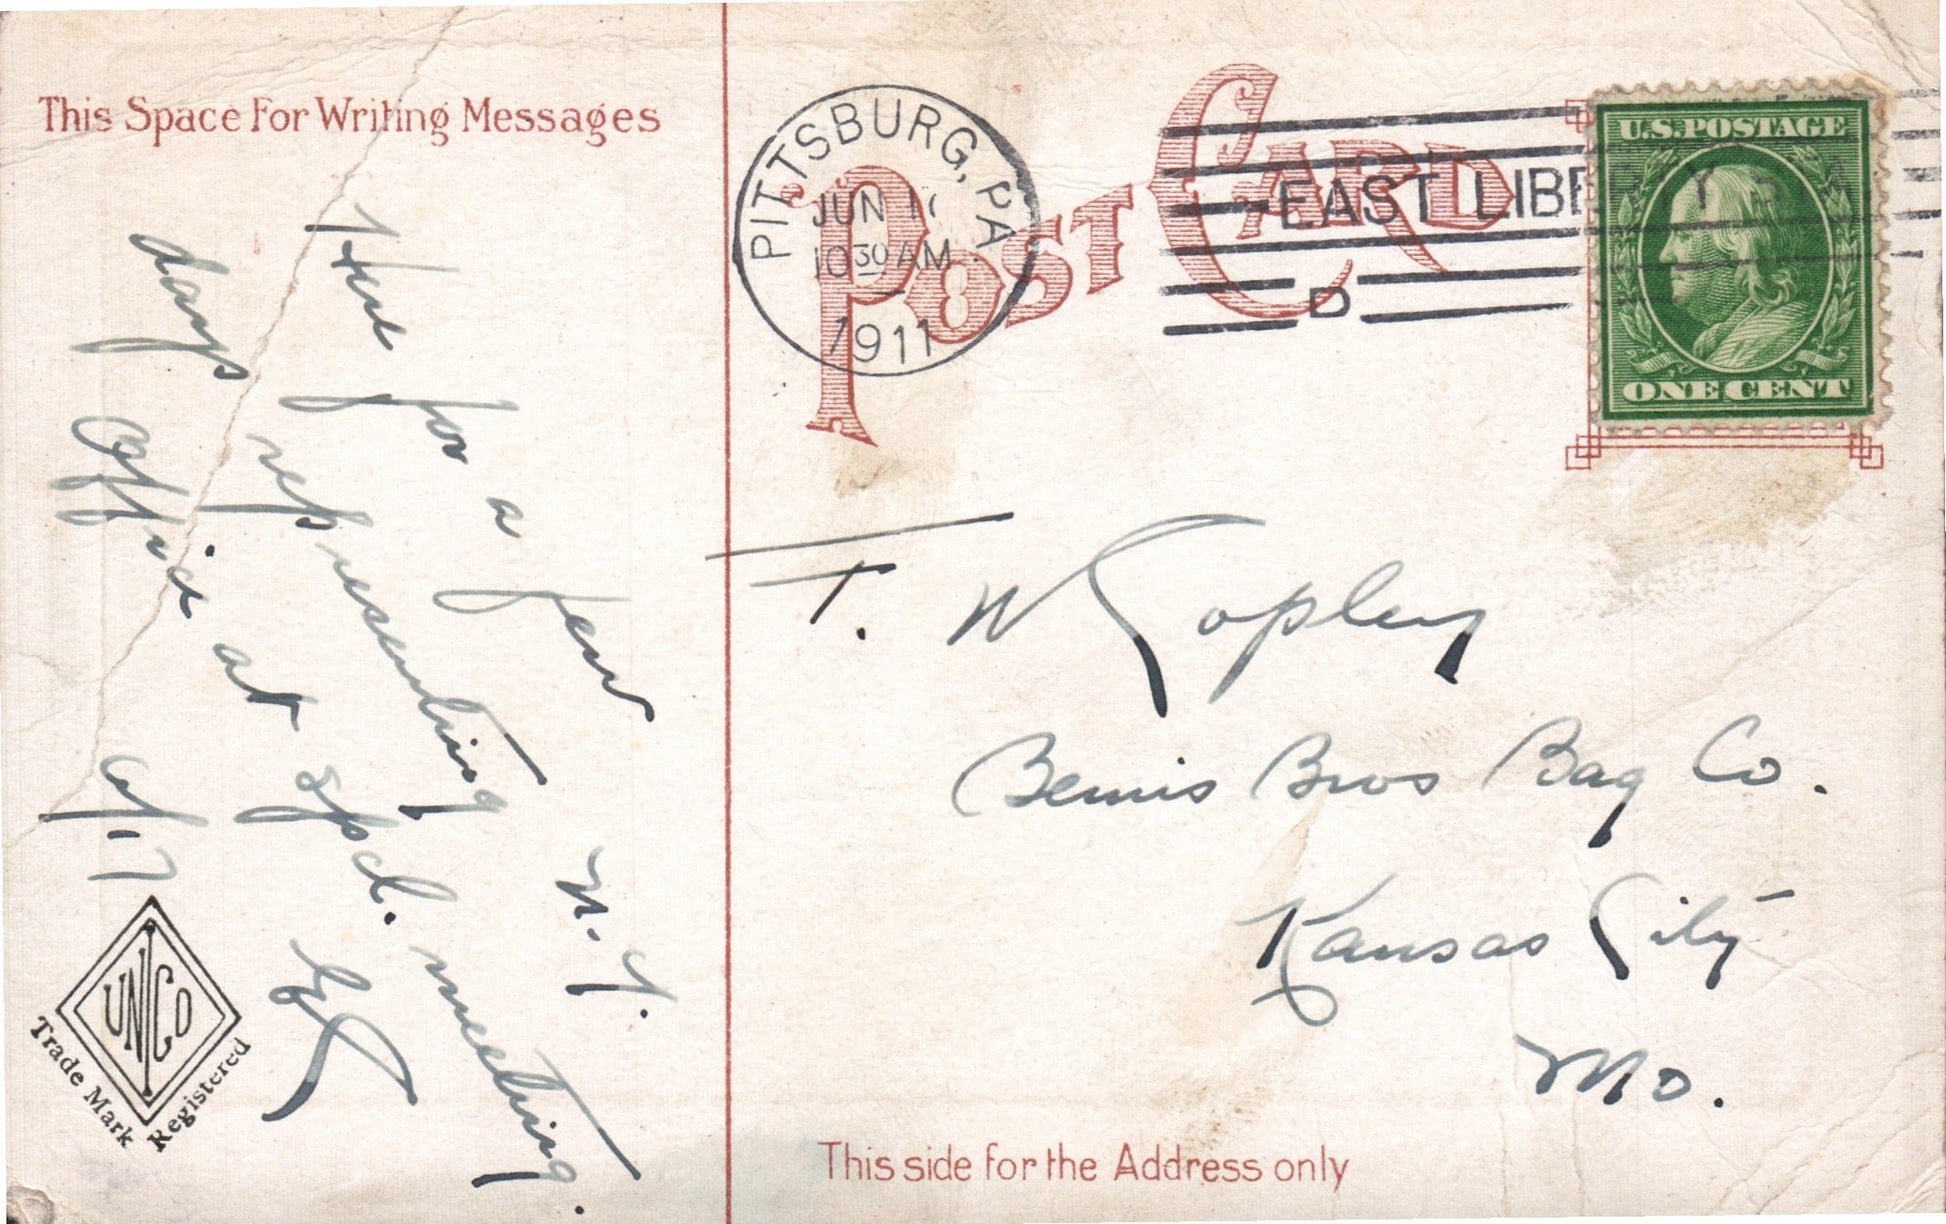 This Space For Writing Messages
Here for a few
days representing N.Y.
Office at spcl. meeting.
6/17
UNICO
Trade Mark Registered
PITTSBURG, PA
JUN 17
10 30 AM
1911
POST CARD
EAST LIBERTY STA.
D
U.S. POSTAGE
ONE CENT
T. W Copley
Bemis Bros Bag Co.
Kansas City
Mo.
This side for the Address only